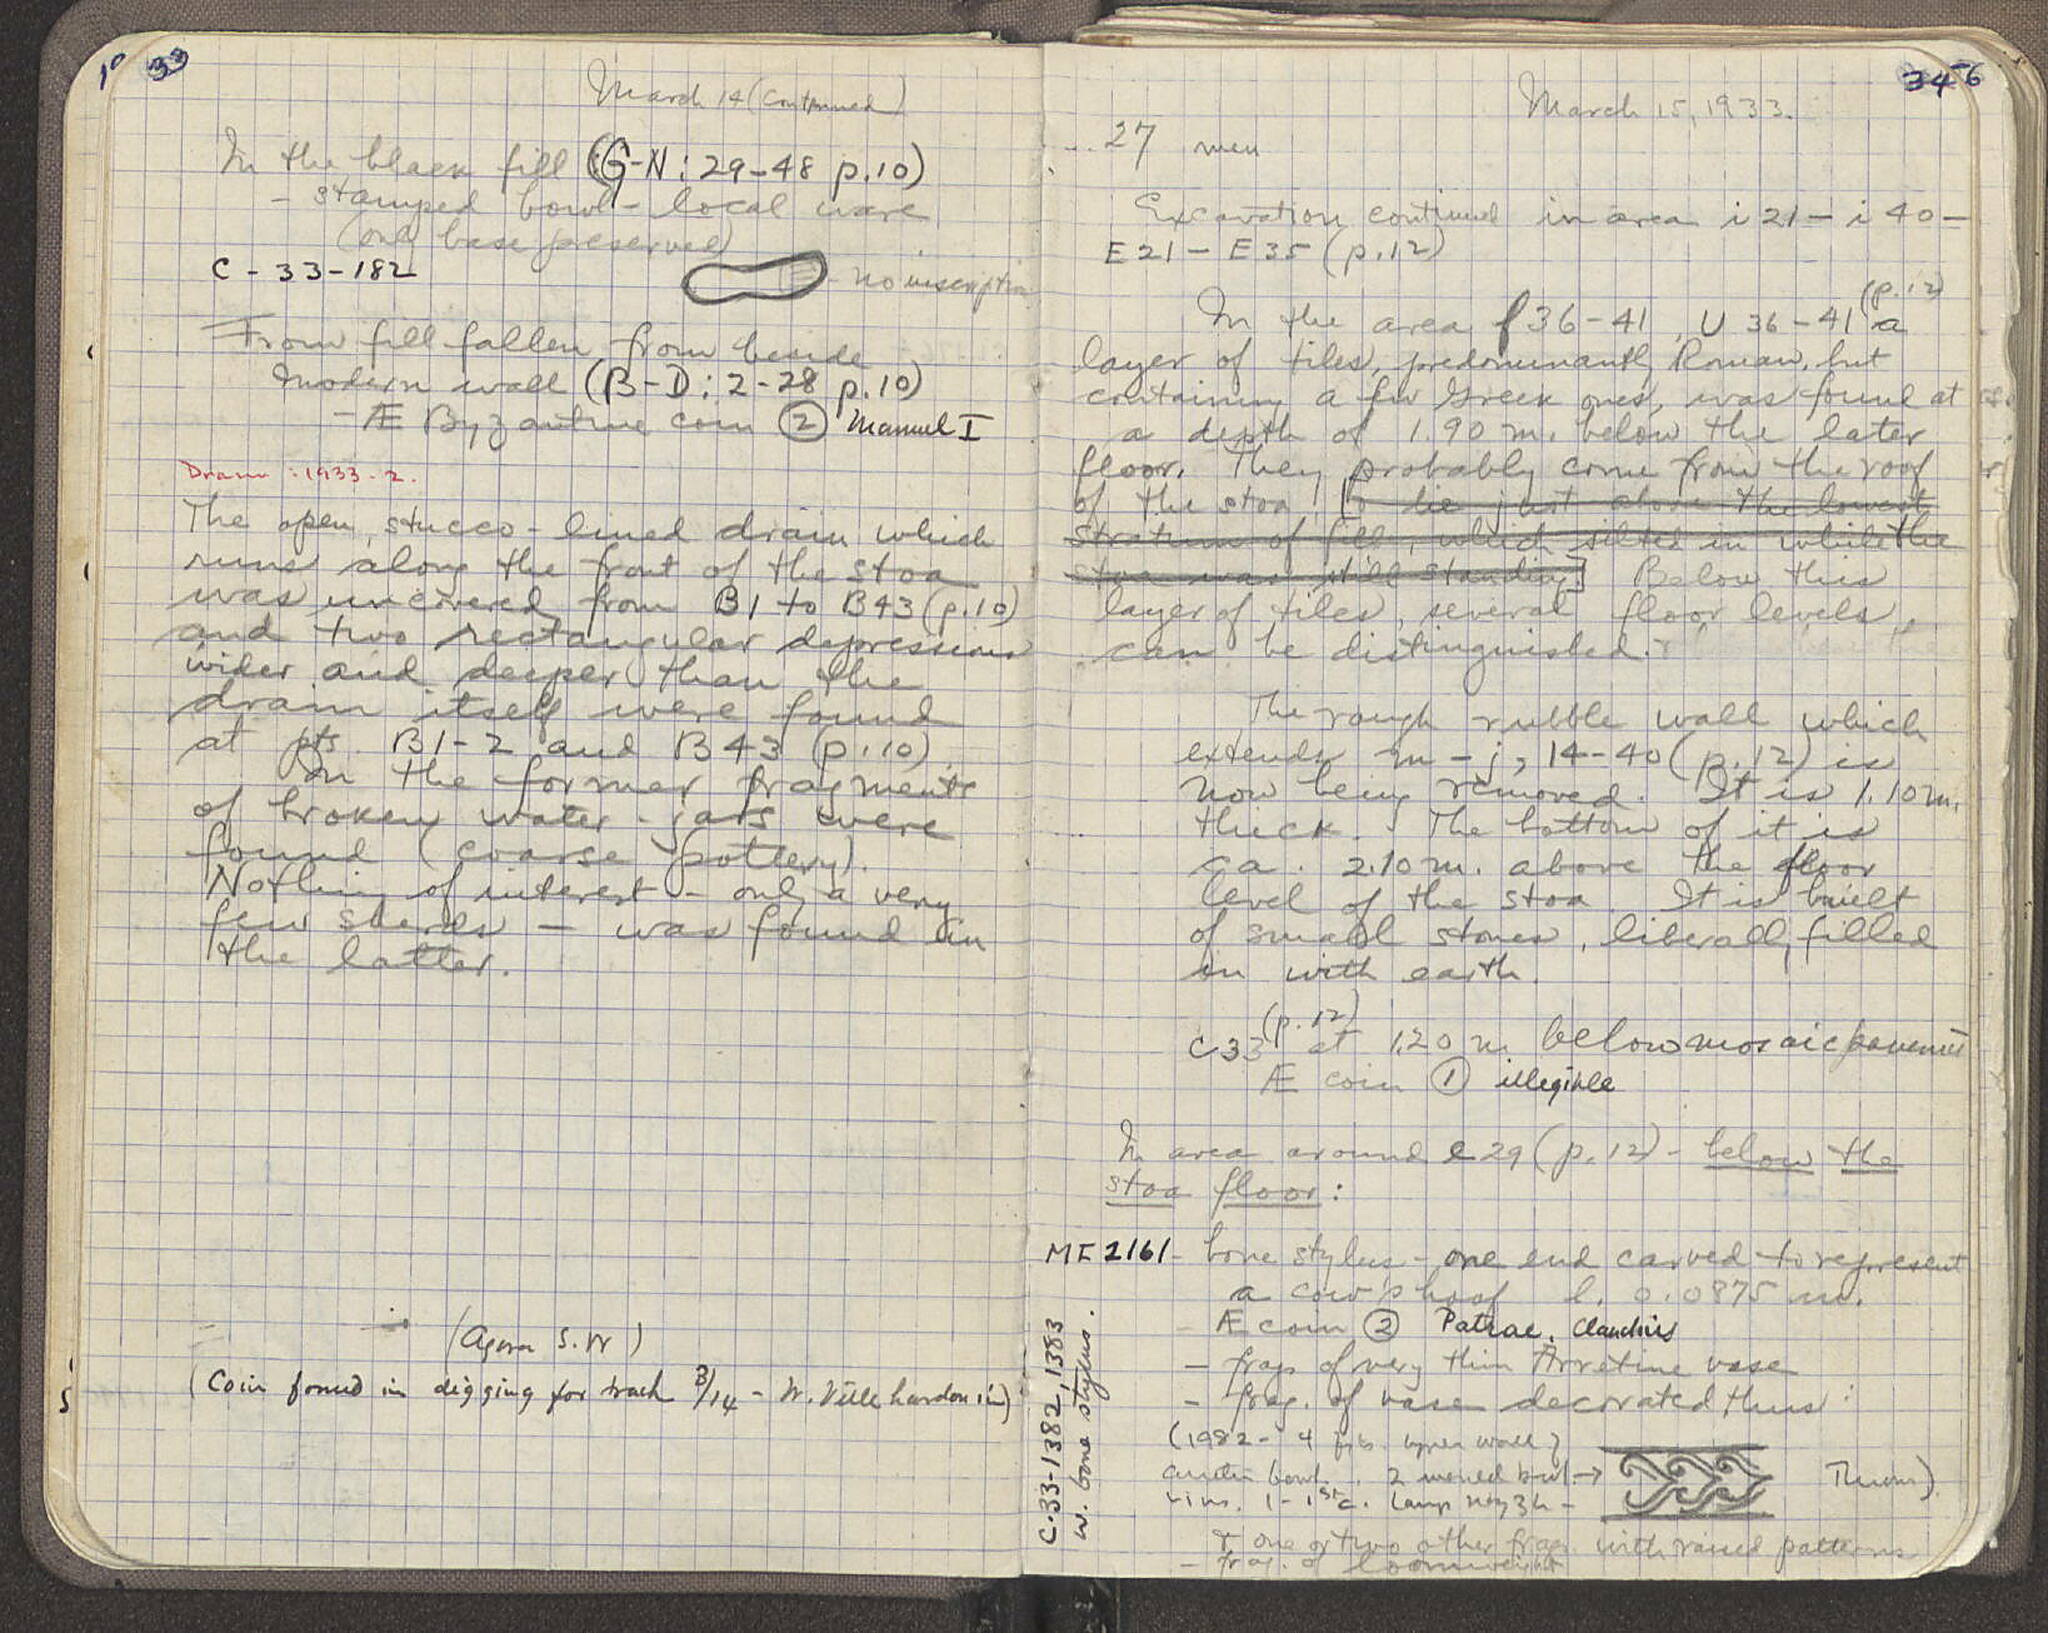 33
March 14 (continued)
In the black fill (G-N: 29-48 p.10)
- stamped bowl - local ware
(only base preserved)
C - 33-182
- no inscription
From fill fallen from beside
modern wall (B-D: 2-28 p.10)
- Æ Byzantine coin ② Manuel I
Drain: 1933-2.
The open, stucco-lined drain which
runs along the front of the stoa
was uncovered from B1 to B43 (p.10)
and two rectangular depressions
wider and deeper than the
drain itself were found
at pts. B1-2 and B43 (p.10).
In the former fragments
of broken water-jars were
found (coarse pottery).
Nothing of interest - only a very
few sherds - was found in
the latter.
(Agora S.W)
(Coin found in digging for track 3/14 - W. Villehardouin)
34
March 15, 1933.
27 men
Excavation continued in area i 21 - i 40 -
E 21 - E 35 (p.12)
(p.12)
In the area f 36-41, U 36-41 a
layer of tiles, predominantly Roman, but
containing a few Greek ones, was found at
a depth of 1.90 m. below the later
floor. They probably come from the roof
of the stoa. [to lie just above the lowest
stratum of fill, which silted in while the
stoa was still standing.] Below this
layer of tiles, several floor levels
can be distinguished.
The rough rubble wall which
extends m - j, 14-40 (p.12) is
now being removed. It is 1.10 m.
thick. The bottom of it is
ca. 2.10 m. above the floor
level of the stoa. It is built
of small stones, liberally filled
in with earth.
(p.12)
C 33 at 1.20 m below mosaic pavement
Æ coin ① illegible
In area around e 29 (p.12) - below the
stoa floor:
MF 2161 - bone stylus - one end carved to represent
a cow's hoof l. 0.0875 m.
- Æ coin ② Patrae, Claudius
- frags of very thin Arretine vase
- frag. of vase decorated thus:
(1982 - 4 upper wall
bowl. 2 bowl →
rims. 1 - 1st c. lamp
+ one or two other frags with raised patterns
- frag. of loomweight
C-33-1382, 1383
w. bone stylus.